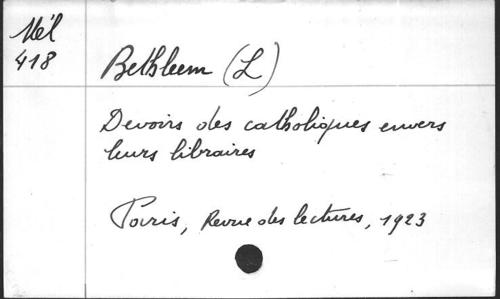 Mél
418
Bethleem (L)
Devoirs des catholiques envers
leurs libraires
Paris, Revue des lectures, 1923